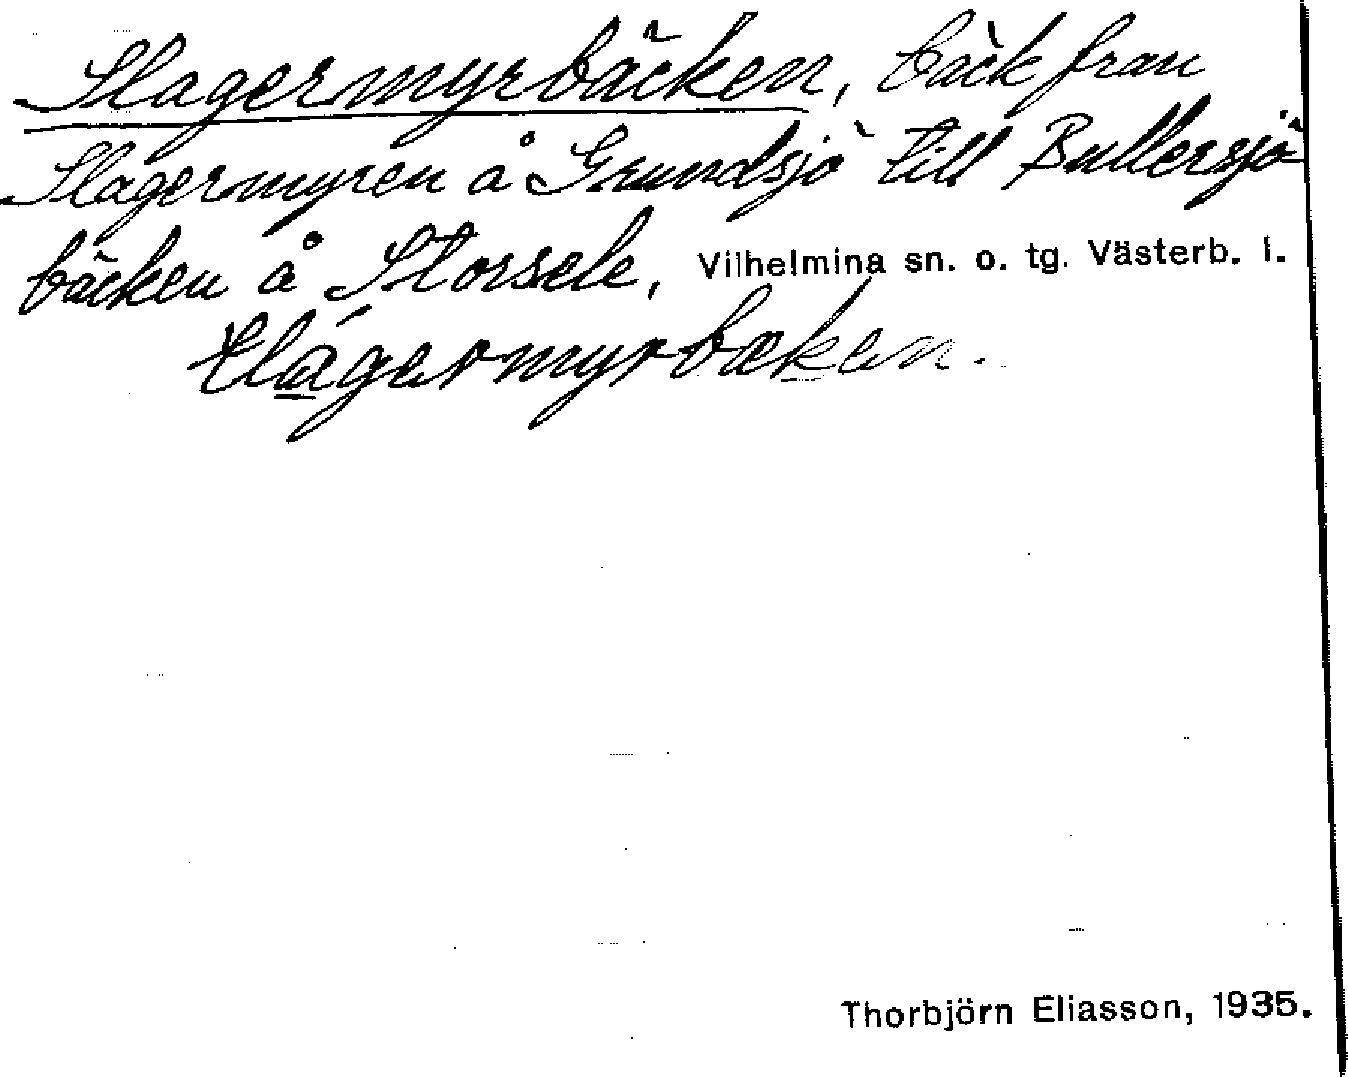 Slagermyrbäcken, bäck från
Slagermyren å Grundsjö till Bullersjö-
bäcken å Storsele, Vilhelmina sn. o. tg. Västerb. l.
Thorbjörn Eliasson, 1935.